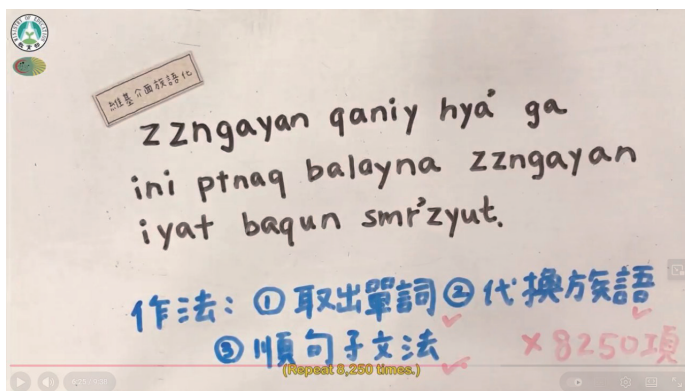 MINISTRY OF EDUCATION
教育部
維基介面族語化
zzngayan qaniy hya' ga
ini ptnaq balayna zzngayan
iyat baqun smr'zyut.
作法：①取出單詞②代換族語
③順句子文法 ×8250項
(Repeat 8,250 times.)